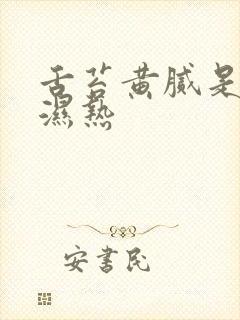 舌苔黄腻是
濕熱
安書民